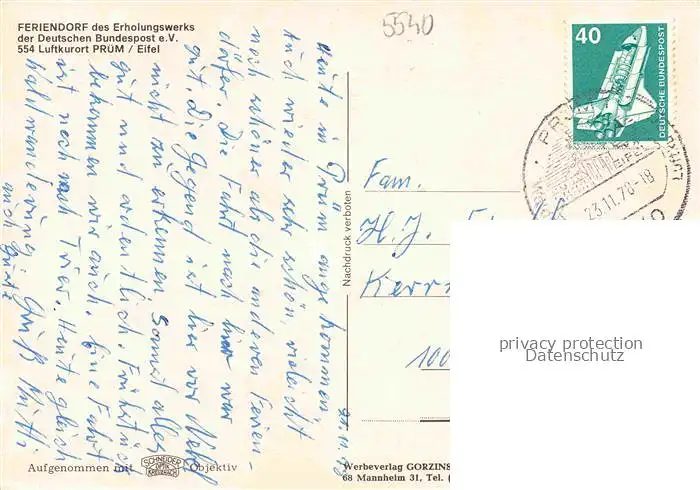 FERIENDORF des Erholungswerks
der Deutschen Bundespost e.V.
554 Luftkurort PRÜM / Eifel
5540
40
DEUTSCHE BUNDESPOST
PRÜM
EIFEL
23.11.78-18
heute in Prüm angekommen
auch wieder sehr schön, vielleicht
noch schöner als die anderen Ferien-
dörfer. Die Fahrt nach hier war
gut. Die Gegend ist hier vor Nebel
nicht zu erkennen. Sonst alles
gut und ordentlich. Frühstück
bekommen wir auch. Eine Fahrt
ist noch nach Trier. Heute gleich
Waldwanderung. Gruß Mutti
auch Grüße
Nachdruck verboten
Fam.
H. J.
Kerr
100
Aufgenommen mit SCHNEIDER OPTIK KREUZNACH Objektiv
Werbeverlag GORZINS
68 Mannheim 31, Tel. (
privacy protection
Datenschutz